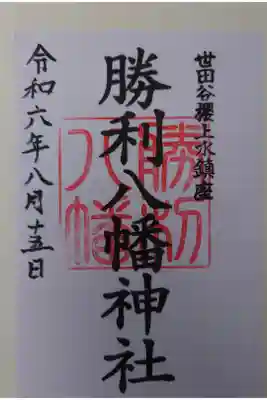 世田谷櫻上水鎮座
勝利八幡神社
勝利
八幡
令和六年八月十五日